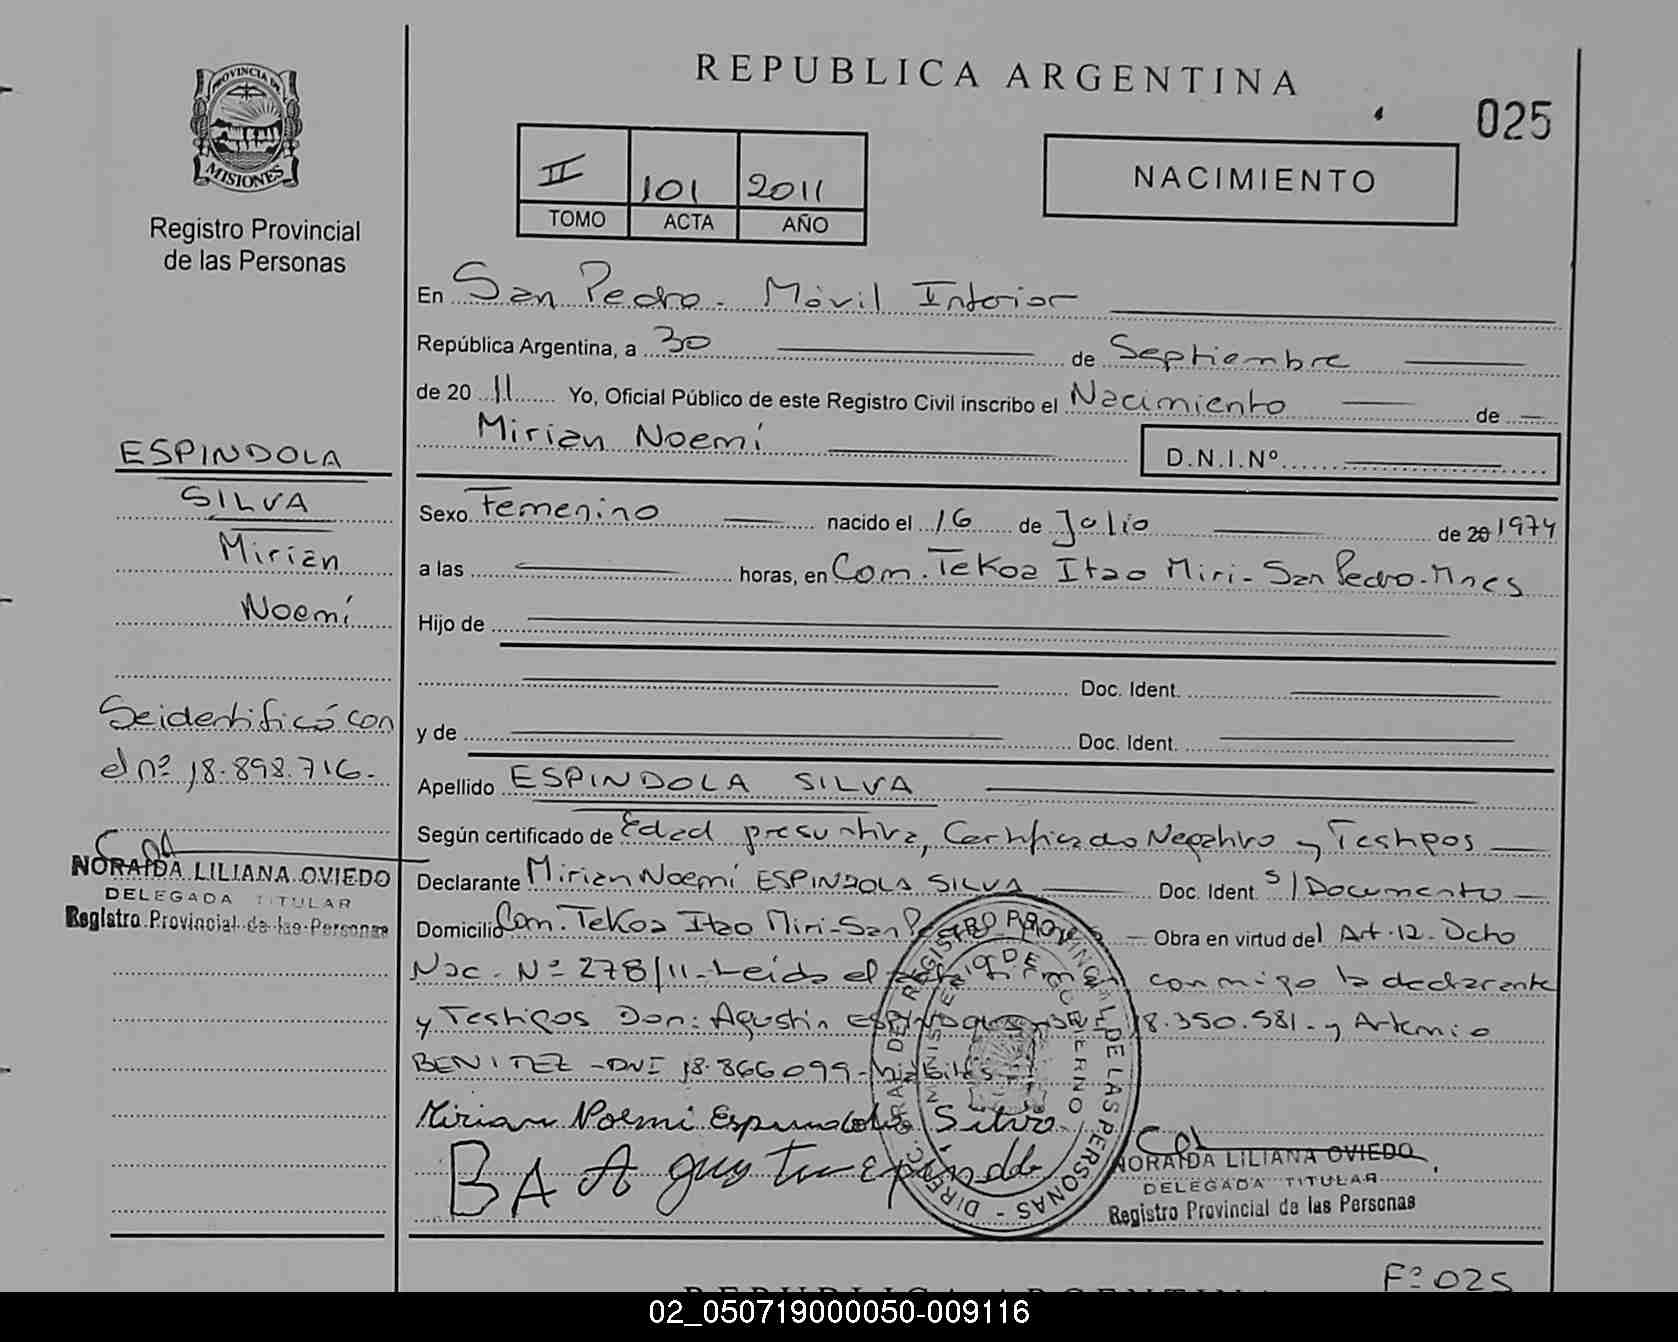 REPUBLICA ARGENTINA
025
PROVINCIA DE
MISIONES
Registro Provincial
de las Personas
II 101 2011
TOMO ACTA AÑO
NACIMIENTO
En San Pedro - Móvil Interior
República Argentina, a 30 de Septiembre
de 20 11 Yo, Oficial Público de este Registro Civil inscribo el Nacimiento de
Mirian Noemí
D.N.I.Nº
Sexo Femenino nacido el 16 de Julio de 20 1974
a las horas, en Com. Tekoa Itao Miri - San Pedro - Mnes
Hijo de
Doc. Ident.
y de Doc. Ident.
Apellido ESPINDOLA SILVA
Según certificado de Edad presuntiva, Certificado Negativo y Testigos
Declarante Mirian Noemí ESPINDOLA SILVA Doc. Ident. S/Documento
Domicilio Com. Tekoa Itao Miri - San Obra en virtud del Art. 12 - Dcto
Nac. Nº 278/11 - Leída el conmigo la declarante
y Testigos Don: Agustín ESPINDOLA 18.350.581 - y Artemio
BENITEZ - DNI 18.866.099 - hábiles -
Mirian Noemi Espindola Silva
BA Agustin Espindola
NORAIDA LILIANA OVIEDO
DELEGADA TITULAR
Registro Provincial de las Personas
DIREC. GRAL. DE REGISTRO PROVINCIAL DE LAS PERSONAS -
MINISTERIO DE GOBIERNO
ESPINDOLA
SILVA
Mirian
Noemí
Se identificó con
el nº 18.898.716 -
NORAIDA LILIANA OVIEDO
DELEGADA TITULAR
Registro Provincial de las Personas
Fº 025
REPUBLICA ARGENTINA
02_050719000050-009116